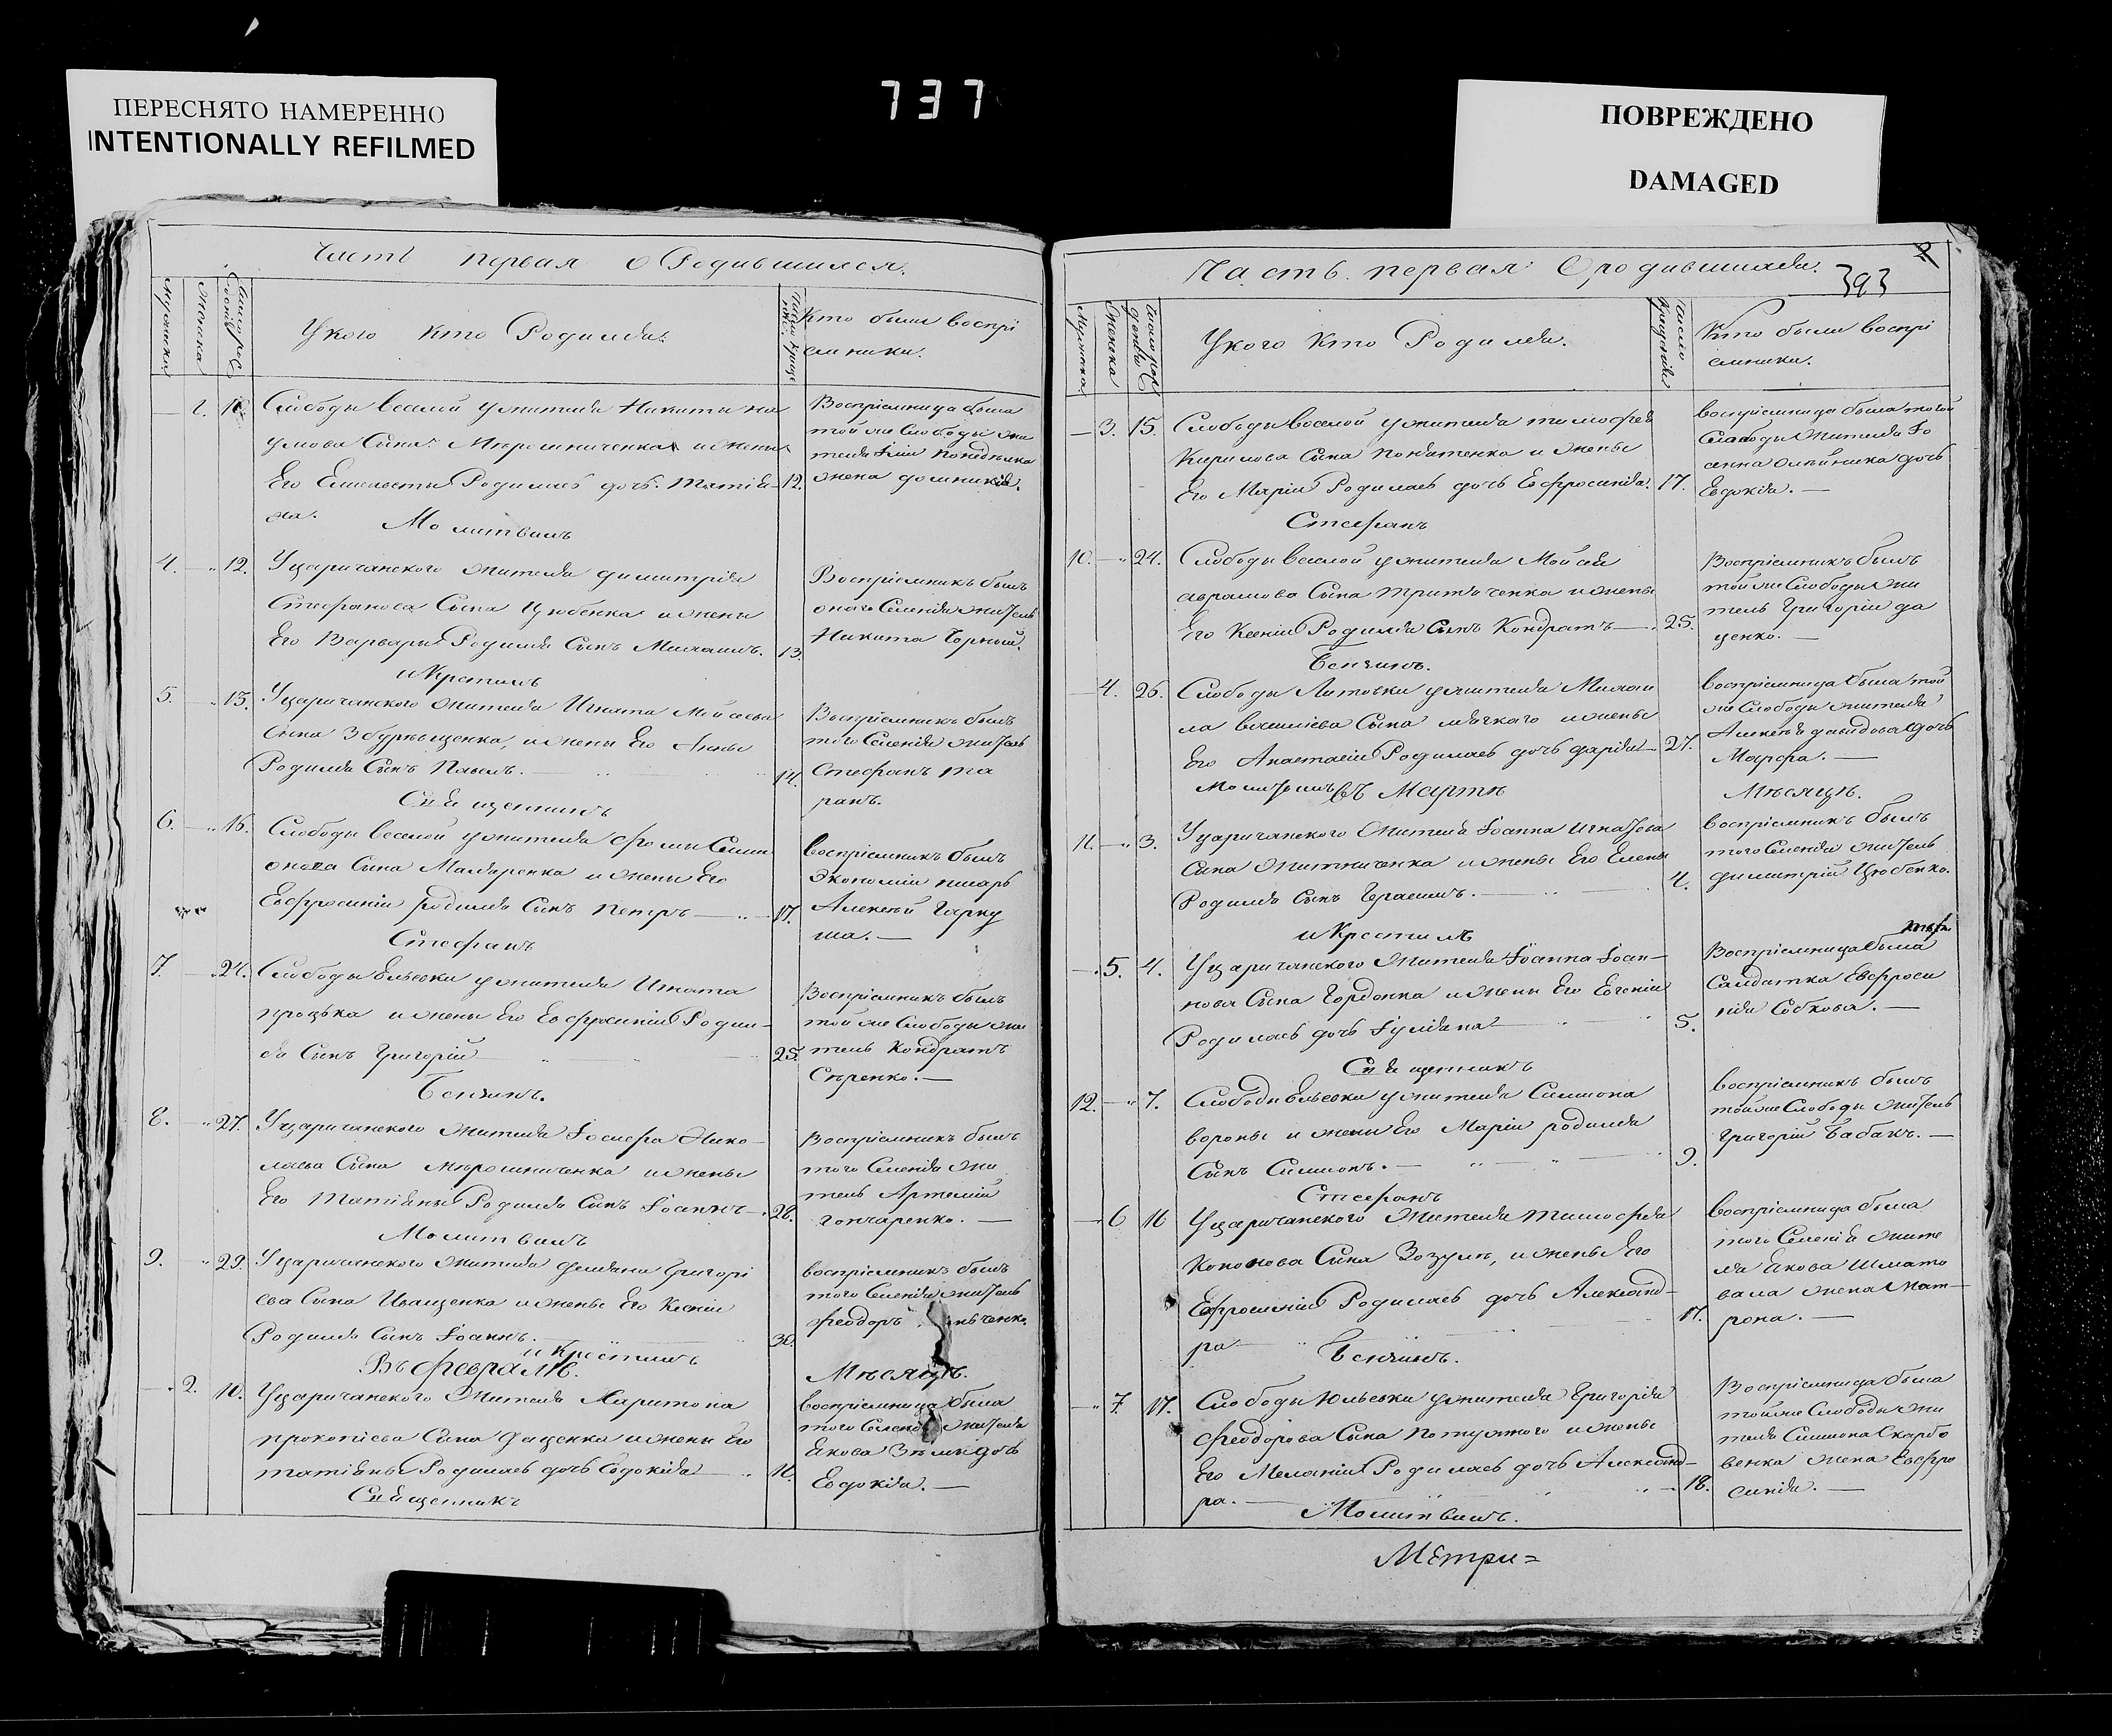 737
ПЕРЕСНЯТО НАМЕРЕННО
INTENTIONALLY REFILMED
ПОВРЕЖДЕНО
DAMAGED
Часть первая о Родившихся.
Мужеска
Женска
Число рож
У кого кто Родился.
Кто были воспрі
емники.
1.
Слободы Веселой ужителя Никиты на
умова Сына Мирошниченка и жены
Его Елисаветы Родилась дочь Татія- 12.
на.
Воспріемница была
той же Слободы жи
теля Іліи
жена домникія.
Молитвилъ
4. 12. Уцаричанского жителя димитрія
Стефанова Сына Цюбенка и жены
Его Варвары Родился Сынъ Михаилъ. 13.
Воспріемникъ былъ
оного Селенія житель
Никита Чорный.
и Крестилъ
5. 13. Уцаричанского жителя Игната Мойсеева
Сына Збурвященка, и жены Его Анны
Родился Сынъ Павелъ. 14.
Воспріемникъ былъ
того Селенія житель
Стефанъ та
ранъ.
Священникъ
6. 16. Слободы Веселой ужителя Фомы Сими
онова Сына Маляренка и жены Его
Евфросиніи родился Сынъ Петръ 17.
воспріемникъ былъ
Экономіи писарь
Алексѣй Гарку
ша.
Стефанъ
7. 24. Слободы Ельевки ужителя Игната
процька и жены Его Евфросиніи Родил-
ся Сынъ Григорій 25.
Воспріемникъ былъ
той же Слободы жи
тель Кондратъ
Сѣренко.
Бензинъ.
8. 27. Уцаричанского жителя Іосифа Нико-
лаева Сына Мирошниченка и жены
Его Татіяны Родился Сынъ Іоаннъ 28.
Воспріемникъ былъ
того Селенія жи
тель Артемій
гончаренко.
Молитвилъ
9. 29. Уцаричанского жителя демяна Григорі
ева Сына Иващенка и жены Его Ксеніи
Родился Сынъ Іоаннъ. 30.
воспріемникъ былъ
того Селенія житель
феодоръ
и Крестилъ
Въ февралѣ. Мѣсяцѣ.
2. 10. Уцаричанского жителя Харитона
прокопіева Сына Даценка и жены Его
татіяны Родилась дочь Евдокія
воспріемница была
того Селенія жителя
Якова дочь
Евдокія.
Священникъ
Часть первая О родившихся. 393
Мужеска
Женска
У кого кто Родился.
Число
Крещенія
Кто были воспрі
емники.
3. 15. Слободы веселой ужителя тимофея
Кирилова Сына Пондатенка и жены
Его Маріи Родилась дочь Евфросинія. 17.
воспріемница была той
Слободы жителя Іо
анна олѣйника дочь
Евдокія.
Стефанъ
10. 24. Слободы веселой ужителя Мойсея
аврамова Сына и жены
Его Ксеніи Родился Сынъ Кондратъ 25.
Воспріемникъ былъ
той же Слободы жи
тель Григорій да
ценко.
Бензинъ.
4. 26. Слободы Литовки ужителя Михаи
ла василіева Сына мягкого и жены
Его Анастасіи Родилась дочь дарія 27.
воспріемница была той
же Слободы жителя
Алексѣя давидова дочь
Марфа.
Молитвилъ Въ Мартѣ Мѣсяцѣ.
11. 3. Уцаричанского жителя Іоанна игнатова
Сына Житниченка и жены Его Елены
Родился Сынъ Герасимъ. 4.
воспріемникъ былъ
того Селенія житель
димитрій Цюбенко.
и Крестилъ
5. 4. Уцаричанского жителя Іоанна Іоан-
нова Сына Гордѣнка и жены Его Евгеніи
Родилась дочь Іуліана 5.
Воспріемница была
Салдатка Евфроси
нія Собкова.
Священникъ
12. 7. Слободы Ельевки ужителя Симиона
вороны и жены Его Маріи родился
Сынъ Симионъ. 9.
воспріемникъ былъ
той же Слободы житель
Григорій Бабакъ.
Стефанъ
6 16 Уцаричанского жителя тимофея
Кононова Сына Зозули, и жены Его
Ефросиніи Родилась дочь Александ-
ра 17.
воспріемница была
того Селенія жите
ля Якова Шмато
вала жена Мат-
рона.
Бензинъ.
7. 17. Слободы Юльевки ужителя Григорія
феодорова Сына Потужного и жены
Его Меланіи Родилась дочь Александ-
ра. 18.
Воспріемница была
той же Слободы жи
теля Симиона Скарбо
венка жена Евфро
синія.
Молитвилъ.
Метри=